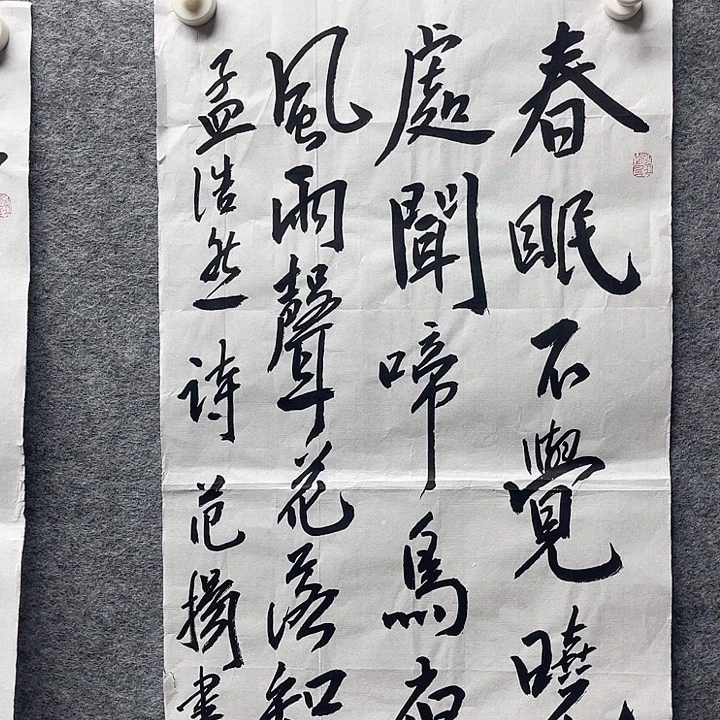 春眠不覺曉
處聞啼鳥夜
風雨聲花落知
孟浩然詩 范揚書